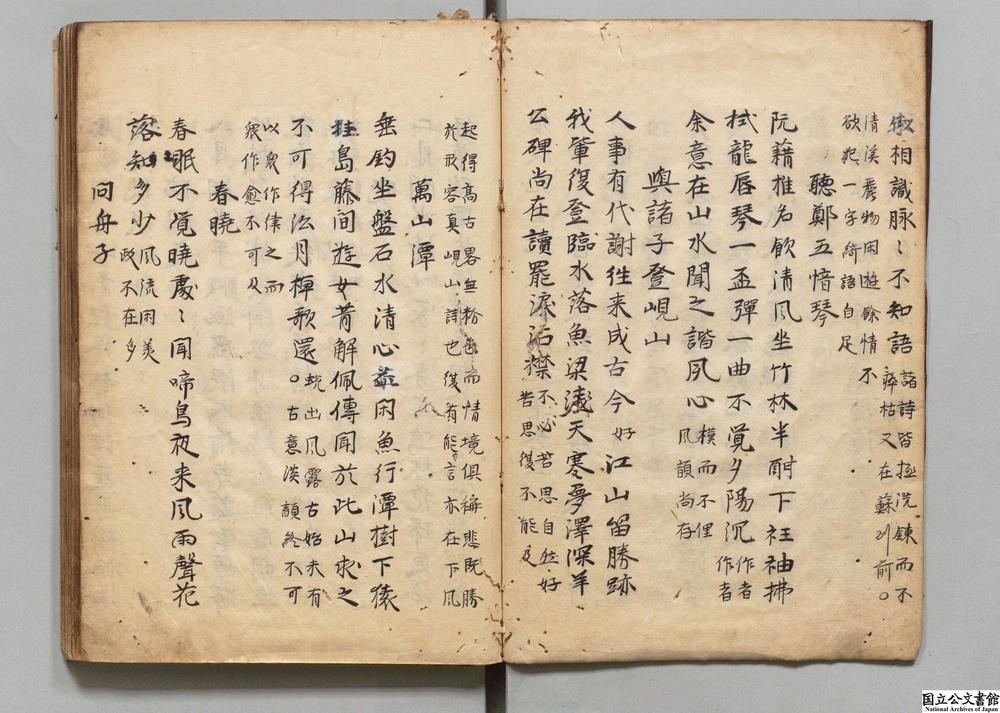 相識脉〻不知語
諸詩皆極洗鍊而不
瘁枯又在蘇州前〇
清溪麗物困遊餘情不
欲犯一字綺語自足
聽鄭五愔琴
阮籍推名飲清風坐竹林半酣下衫袖拂
拭龍唇琴一盃彈一曲不覺夕陽沉
作者
作者
余意在山水聞之諧夙心
模而不俚
風韻尚存
與諸子登峴山
人事有代謝往来成古今好江山留勝跡
我輩復登臨水落魚梁淺天寒夢澤深羊
公碑尚在讀罷淚沾襟
不必苦思自然好
苦思復不能及
起得高古畧無粉色而情境俱稱悲既勝
於形容真峴山詩也復有能言亦在下風
萬山潭
垂釣坐盤石水清心益閑魚行潭樹下猿
挂島藤間遊女昔解佩傳聞於此山求之
不可得沿月棹歌還
蛻出風露古始未有
〇古意淡韻終不可
以衆作律之而
衆作愈不可及
春曉
春眠不覺曉處〻聞啼鳥夜来風雨聲花
落知多少
風流閑美
政不在多
問舟子
国立公文書館
National Archives of Japan